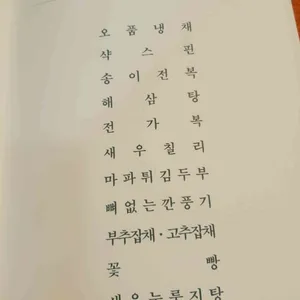 오품냉채
샥스핀
송이전복
해삼탕
전가복
새우칠리
마파튀김두부
뼈없는깐풍기
부추잡채·고추잡채
꽃빵
새우누룽지탕